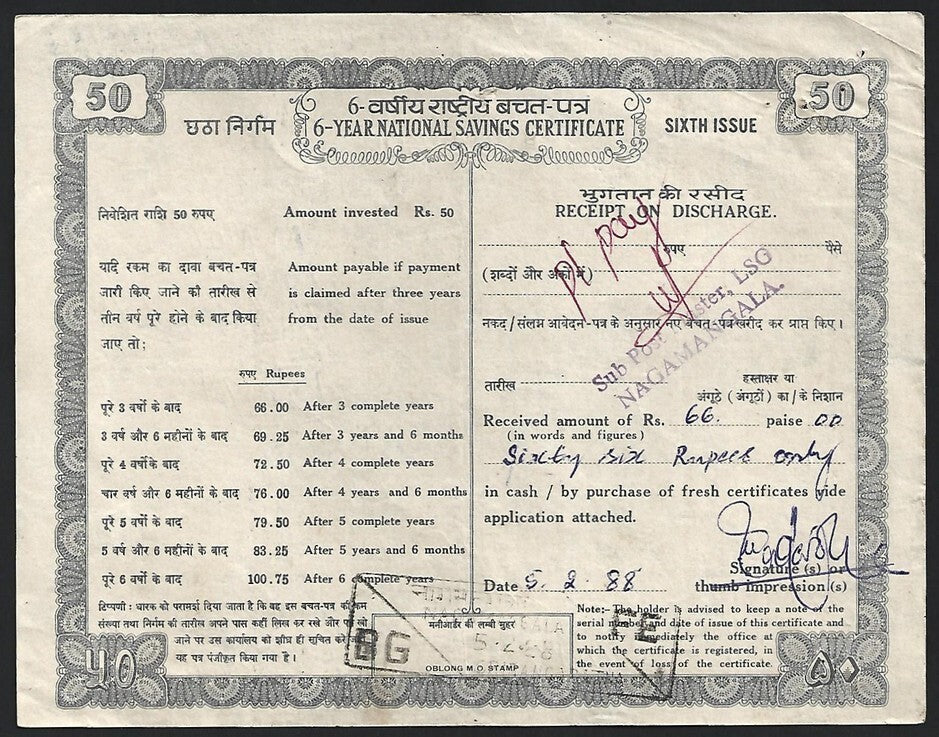 50
50
6-वर्षीय राष्ट्रीय बचत-पत्र
छठा निर्गम
6-YEAR NATIONAL SAVINGS CERTIFICATE
SIXTH ISSUE
निवेशित राशि 50 रुपए
Amount invested Rs. 50
यदि रकम का दावा बचत-पत्र
जारी किए जाने की तारीख से
तीन वर्ष पूरे होने के बाद किया
जाए तो;
Amount payable if payment
is claimed after three years
from the date of issue
रुपए Rupees
पूरे 3 वर्षो के बाद 66.00 After 3 complete years
3 वर्ष और 6 महीनों के बाद 69.25 After 3 years and 6 months
पूरे 4 वर्षो के बाद 72.50 After 4 complete years
चार वर्ष और 6 महीनों के बाद 76.00 After 4 years and 6 months
पूरे 5 वर्षो के बाद 79.50 After 5 complete years
5 वर्ष और 6 महीनों के बाद 83.25 After 5 years and 6 months
पूरे 6 वर्षो के बाद 100.75 After 6 complete years
टिप्पणी: धारक को परामर्श दिया जाता है कि वह इस बचत-पत्र की
संख्या तथा निर्गम की तारीख अपने पास कहीं लिख कर रखे और
जाने पर उस कार्यालय को शीघ्र ही सूचित करे
यह पत्र पंजीकृत किया गया है।
भुगतान की रसीद
RECEIPT ON DISCHARGE.
pl pay
रुपए पैसे
(शब्दों और अंकों में)
Sub Post Master, LSG
NAGAMANGALA.
नकद/संलग्न आवेदन-पत्र के अनुसार नए बचत-पत्र खरीद कर प्राप्त किए।
तारीख
हस्ताक्षर या
अंगूठे (अंगूठों) का/के निशान
Received amount of Rs. 66. paise 00
(in words and figures)
Sixty six Rupees only
in cash / by purchase of fresh certificates vide
application attached.
Signature (s) or
Date 5.2.88 thumb impression (s)
Note:- The holder is advised to keep a note of the
serial number and date of issue of this certificate and
to notify immediately the office at
which the certificate is registered, in
the event of loss of the certificate.
मनीआर्डर की लम्बी मुहर
5-2-88
BG
OBLONG M.O. STAMP
५०